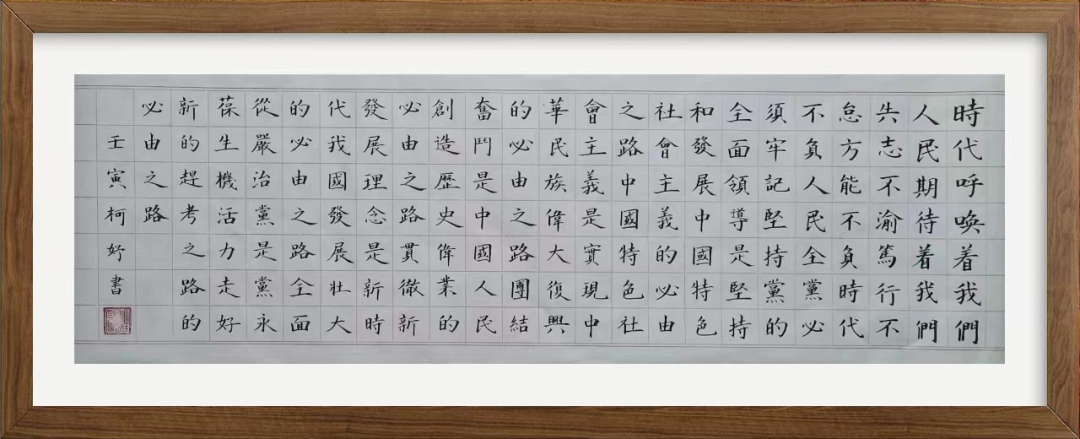 時代呼唤着我們
人民期待着我們
矢志不渝篤行不
怠方能不負時代
不負人民全黨必
須牢記堅持黨的
全面領導是堅持
和發展中國特色
社會主義的必由
之路中國特色社
會主義是實現中
華民族偉大復興
的必由之路團結
奮鬥是中國人民
創造歷史偉業的
必由之路貫徹新
發展理念是新時
代我國發展壯大
的必由之路全面
從嚴治黨是黨永
葆生機活力走好
新的趕考之路的
必由之路
壬寅柯妤書